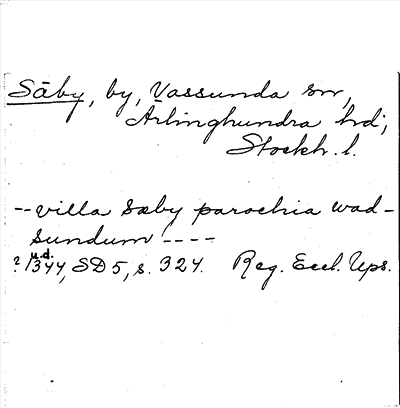 Säby, by, Vassunda sn,
Ärlinghundra hd;
Stockh. l.
-- villa Sæby parochia wad-
sundum ----
u.d.
? 1344, SD 5, s. 324. Reg. Eccl. Ups.